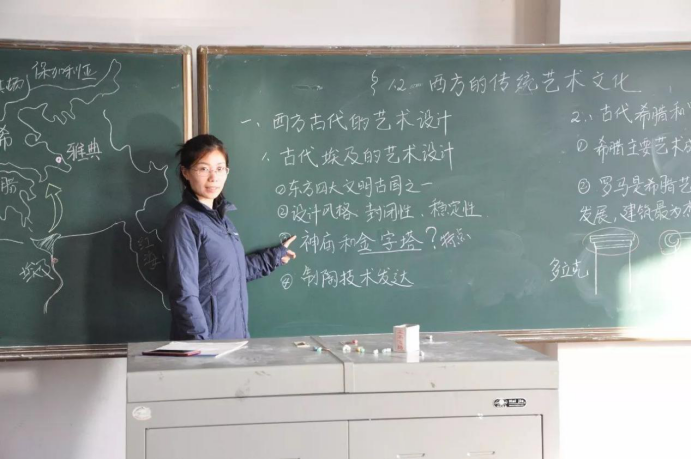 保加利亚
希
雅典
腊
§12 西方的传统艺术文化
一、西方古代的艺术设计
1. 古代埃及的艺术设计
①东方四大文明古国之一
②设计风格 封闭性、稳定性
③神庙和金字塔？特点
④制陶技术发达
2. 古代希腊和
①希腊主要艺术成
②罗马是希腊艺
发展、建筑最为
多立克